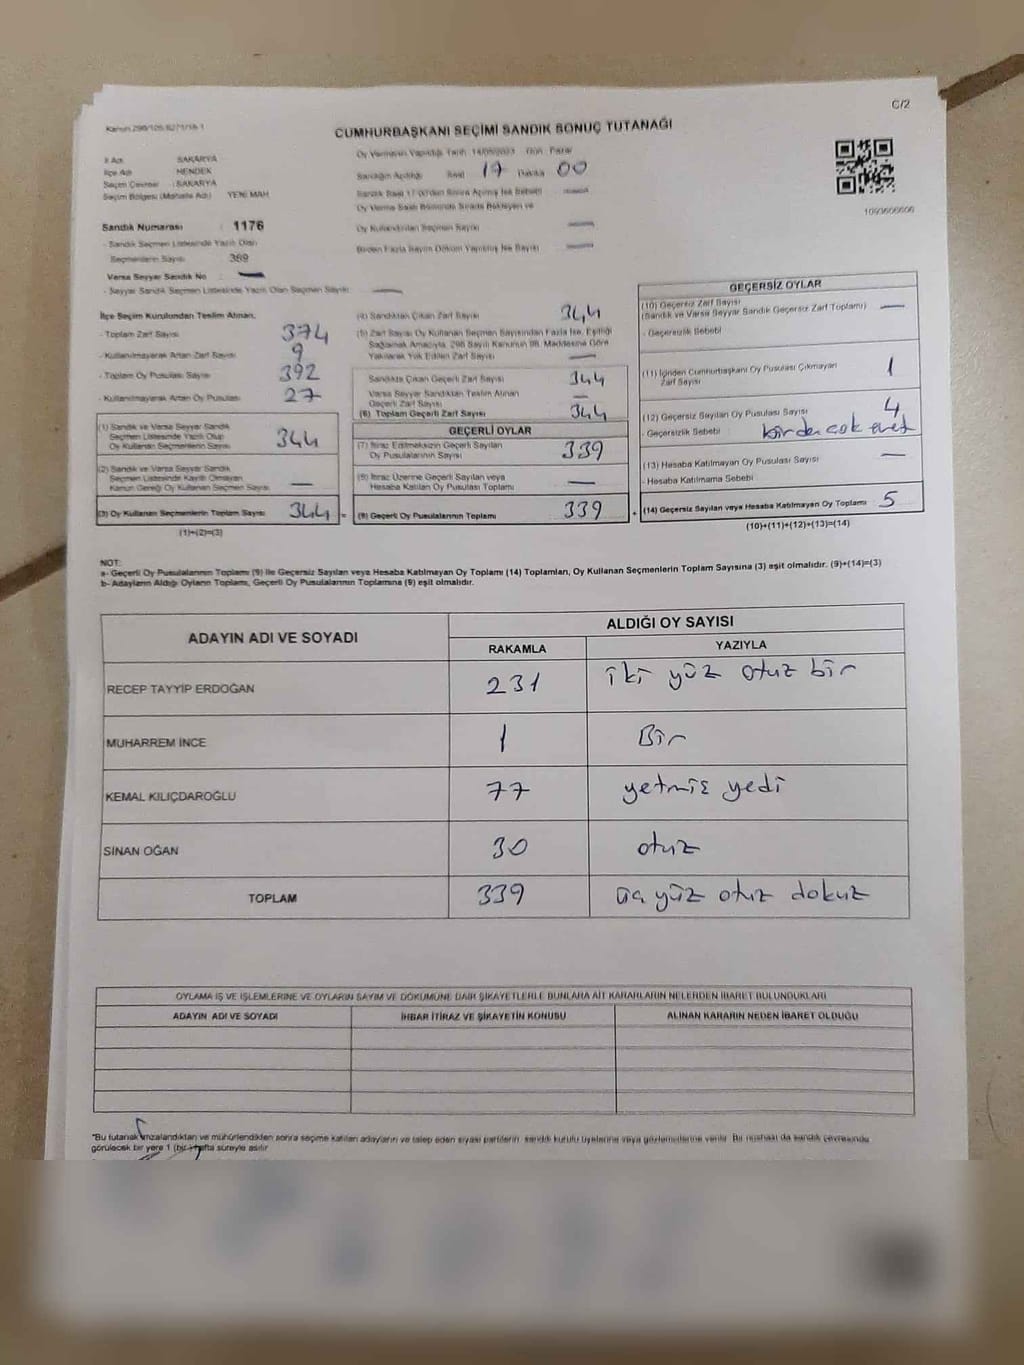 C/2
Kanun 298/105, 6271/18-1
CUMHURBAŞKANI SEÇİMİ SANDIK SONUÇ TUTANAĞI
İl Adı SAKARYA
İlçe Adı HENDEK
Seçim Çevresi : SAKARYA
Seçim Bölgesi (Mahalle Adı) YENİ MAH
Oy Vermenin Yapıldığı Tarih 14/05/2023 Gün Pazar
Sandığın Açıldığı Saat 17 Dakika 00
Sandık Saat 17:00'den Sonra Açılmış İse Sebebi
Oy Verme Saati Bitiminde Sırada Bekleyen ve
Oy Kullandırılan Seçmen Sayısı
Birden Fazla Sayım Döküm Yapılmış İse Sayısı
1093606606
Sandık Numarası : 1176
- Sandık Seçmen Listesinde Yazılı Olan
Seçmenlerin Sayısı 369
Varsa Seyyar Sandık No
- Seyyar Sandık Seçmen Listesinde Yazılı Olan Seçmen Sayısı
İlçe Seçim Kurulundan Teslim Alınan,
- Toplam Zarf Sayısı 374
- Kullanılmayarak Artan Zarf Sayısı 9
- Toplam Oy Pusulası Sayısı 392
- Kullanılmayarak Artan Oy Pusulası 27
(1) Sandık ve Varsa Seyyar Sandık
Seçmen Listesinde Yazılı Olup
Oy Kullanan Seçmenlerin Sayısı 344
(2) Sandık ve Varsa Seyyar Sandık
Seçmen Listesinde Kayıtlı Olmayan
Kanun Gereği Oy Kullanan Seçmen Sayısı
(3) Oy Kullanan Seçmenlerin Toplam Sayısı 344 =
(1)+(2)=(3)
(4) Sandıktan Çıkan Zarf Sayısı 344
(5) Zarf Sayısı Oy Kullanan Seçmen Sayısından Fazla İse, Eşitliği
Sağlamak Amacıyla, 298 Sayılı Kanunun 98. Maddesine Göre
Yakılarak Yok Edilen Zarf Sayısı
Sandıkta Çıkan Geçerli Zarf Sayısı 344
Varsa Seyyar Sandıktan Teslim Alınan
Geçerli Zarf Sayısı
(6) Toplam Geçerli Zarf Sayısı 344
GEÇERLİ OYLAR
(7) İtiraz Edilmeksizin Geçerli Sayılan
Oy Pusulalarının Sayısı 339
(8) İtiraz Üzerine Geçerli Sayılan veya
Hesaba Katılan Oy Pusulası Toplamı
(9) Geçerli Oy Pusulalarının Toplamı 339 +
GEÇERSİZ OYLAR
(10) Geçersiz Zarf Sayısı
(Sandık ve Varsa Seyyar Sandık Geçersiz Zarf Toplamı)
- Geçersizlik Sebebi
(11) İçinden Cumhurbaşkanı Oy Pusulası Çıkmayan
Zarf Sayısı 1
(12) Geçersiz Sayılan Oy Pusulası Sayısı 4
- Geçersizlik Sebebi birden çok evet
(13) Hesaba Katılmayan Oy Pusulası Sayısı
- Hesaba Katılmama Sebebi
(14) Geçersiz Sayılan veya Hesaba Katılmayan Oy Toplamı 5
(10)+(11)+(12)+(13)=(14)
NOT:
a- Geçerli Oy Pusulalarının Toplamı (9) ile Geçersiz Sayılan veya Hesaba Katılmayan Oy Toplamı (14) Toplamları, Oy Kullanan Seçmenlerin Toplam Sayısına (3) eşit olmalıdır. (9)+(14)=(3)
b- Adayların Aldığı Oyların Toplamı, Geçerli Oy Pusulalarının Toplamına (9) eşit olmalıdır.
ADAYIN ADI VE SOYADI
ALDIĞI OY SAYISI
RAKAMLA YAZIYLA
RECEP TAYYİP ERDOĞAN 231 iki yüz otuz bir
MUHARREM İNCE 1 Bir
KEMAL KILIÇDAROĞLU 77 yetmiş yedi
SİNAN OĞAN 30 otuz
TOPLAM 339 üç yüz otuz dokuz
OYLAMA İŞ VE İŞLEMLERİNE VE OYLARIN SAYIM VE DÖKÜMÜNE DAİR ŞİKAYETLERLE BUNLARA AİT KARARLARIN NELERDEN İBARET BULUNDUKLARI
ADAYIN ADI VE SOYADI İHBAR İTİRAZ VE ŞİKAYETİN KONUSU ALINAN KARARIN NEDEN İBARET OLDUĞU
"Bu tutanak imzalandıktan ve mühürlendikten sonra seçime katılan adayların ve talep eden siyasi partilerin sandık kurulu üyelerine veya gözlemcilerine verilir. Bir nüshası da sandık çevresinde
görülecek bir yere 1 (bir) hafta süreyle asılır